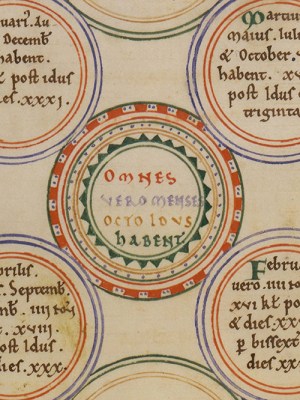 uari. Au.
Decemb
habent.
& post idus
dies. xxxi.
Martiu
maius, iuli
& October. S
habent. x
post idus d
triginta
OMNES
VERO MENSES
OCTO IDVS
HABENT.
prilis.
s. Septemb.
xviii.
post Idus.
dies. xxx.
Febru
vero. iiii no
& dies xx
p bissext
dies xx